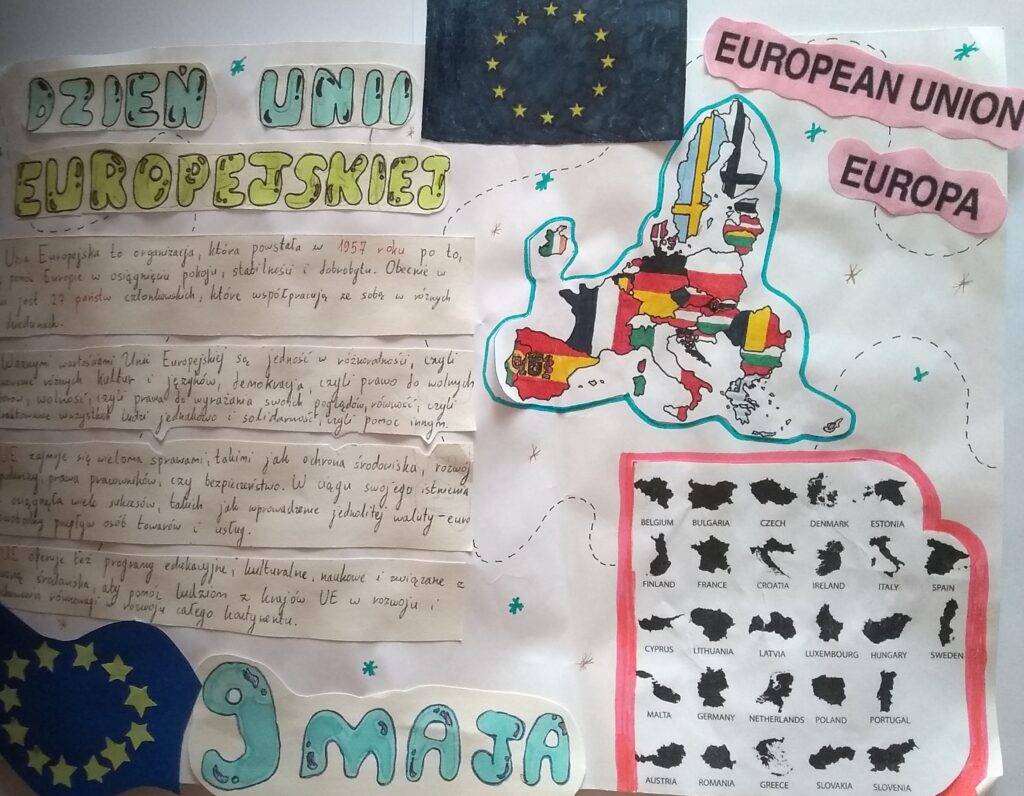 DZIEŃ UNII
EUROPEJSKIEJ
EUROPEAN UNION
EUROPA
Unia Europejska to organizacja, która powstała w 1957 roku po to,
Europie w osiągnięciu pokoju, stabilności i dobrobytu. Obecnie w
jest 27 państw członkowskich, które współpracują ze sobą w różnych
dziedzinach.
Ważnymi wartościami Unii Europejskiej są jedność w różnorodności, czyli
różnych kultur i języków, demokracja, czyli prawo do wolnych
wolność, czyli prawo do wyrażania swoich poglądów, równość, czyli
wszystkich ludzi jednakowo i solidarność, czyli pomoc innym.
UE zajmuje się wieloma sprawami, takimi jak ochrona środowiska, rozwój
prawa pracowników, czy bezpieczeństwo. W ciągu swojego istnienia
osiągnęła wiele sukcesów, takich jak wprowadzenie jednolitej waluty-euro
przepływ osób towarów i usług.
UE oferuje też programy edukacyjne, kulturalne, naukowe i związane z
środowiska, aby pomóc ludziom z krajów. UE w rozwoju i
rozwoju całego kontynentu.
9 MAJA
BELGIUM BULGARIA CZECH DENMARK ESTONIA
FINLAND FRANCE CROATIA IRELAND ITALY SPAIN
CYPRUS LITHUANIA LATVIA LUXEMBOURG HUNGARY SWEDEN
MALTA GERMANY NETHERLANDS POLAND PORTUGAL
AUSTRIA ROMANIA GREECE SLOVAKIA SLOVENIA